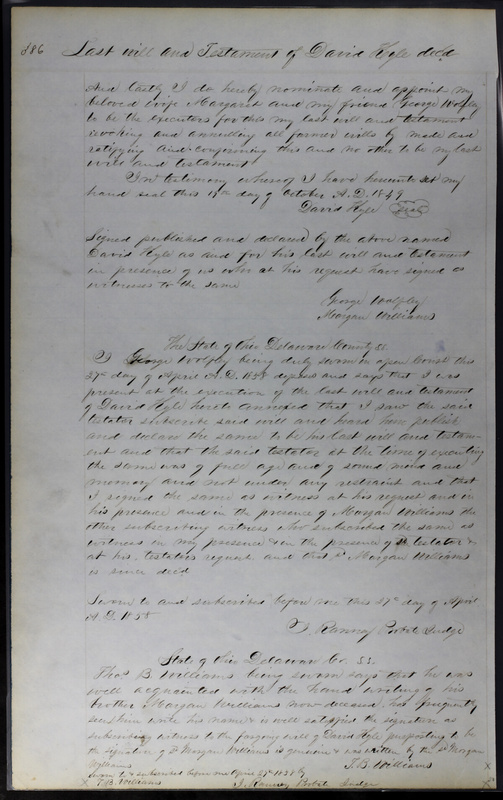 386 Last will and Testament of David Kyle decd
And lastly I do hereby nominate and appoint my
beloved wife Margaret and my friend George Wolfley
to be the executors for this my last will and testament
revoking and annulling all former wills by me made and
ratifying and confirming this and no other to be my last
will and testament
In testimony whereof I have hereunto set my
hand seal this 19th day of October A.D. 1849
David Kyle Seal
Signed published and declared by the above named
David Kyle as and for his last will and testament
in presence of us who at his request have signed as
witnesses to the same
George Wolfley
Morgan Williams
The State of Ohio Delaware County ss.
I George Wolfley being duly sworn in open Court this
27th day of April A.D. 1858 depose and says that I was
present at the execution of the last will and testament
of David Kyle hereto annexed that I saw the said
testator subscribe said will and heard him publish
and declare the same to be his last will and testam-
ent and that the said testator at the time of executing
the same was of full age and of sound mind and
memory and not under any restraint and that
I signed the same as witness at his request and in
his presence and in the presence of Morgan Williams the
other subscribing witness who subscribed the same as
witness in my presence & in the presence of sd testator &
at his, testators request and that sd Morgan Williams
is since decd
Sworn to and subscribed before me this 27th day of April
A.D. 1858
T. Ranney Probate Judge
State of Ohio Delaware Co. S.S.
Thos B. Williams being sworn says that he was
well acquainted with the hand writing of his
brother Morgan Williams now deceased, has frequently
seen him write his name & is well satisfied the signature as
subscribing witness to the foregoing will of David Kyle purporting to be
the signature of sd Morgan Williams is genuine & was written by the sd Morgan
Williams T.B. Williams
Sworn to & subscribed before me April 27th 1858 by
T.B. Williams J. Ranney Probate Judge